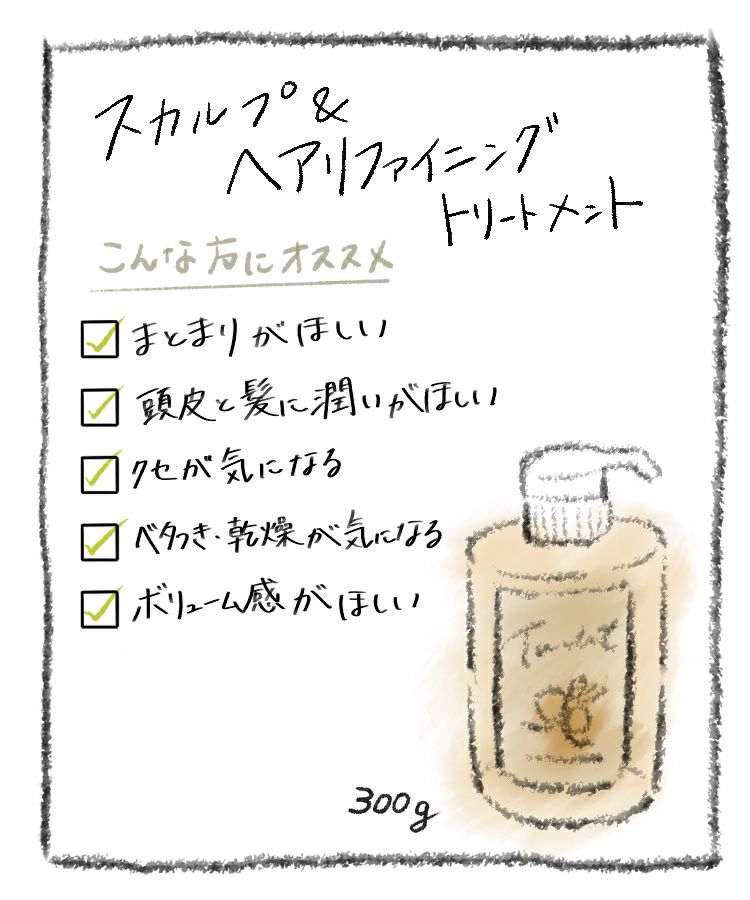 スカルプ&
ヘアリファイニング
トリートメント
こんな方にオススメ
まとまりがほしい
頭皮と髪に潤いがほしい
クセが気になる
ベタつき・乾燥が気になる
ボリューム感がほしい
300g